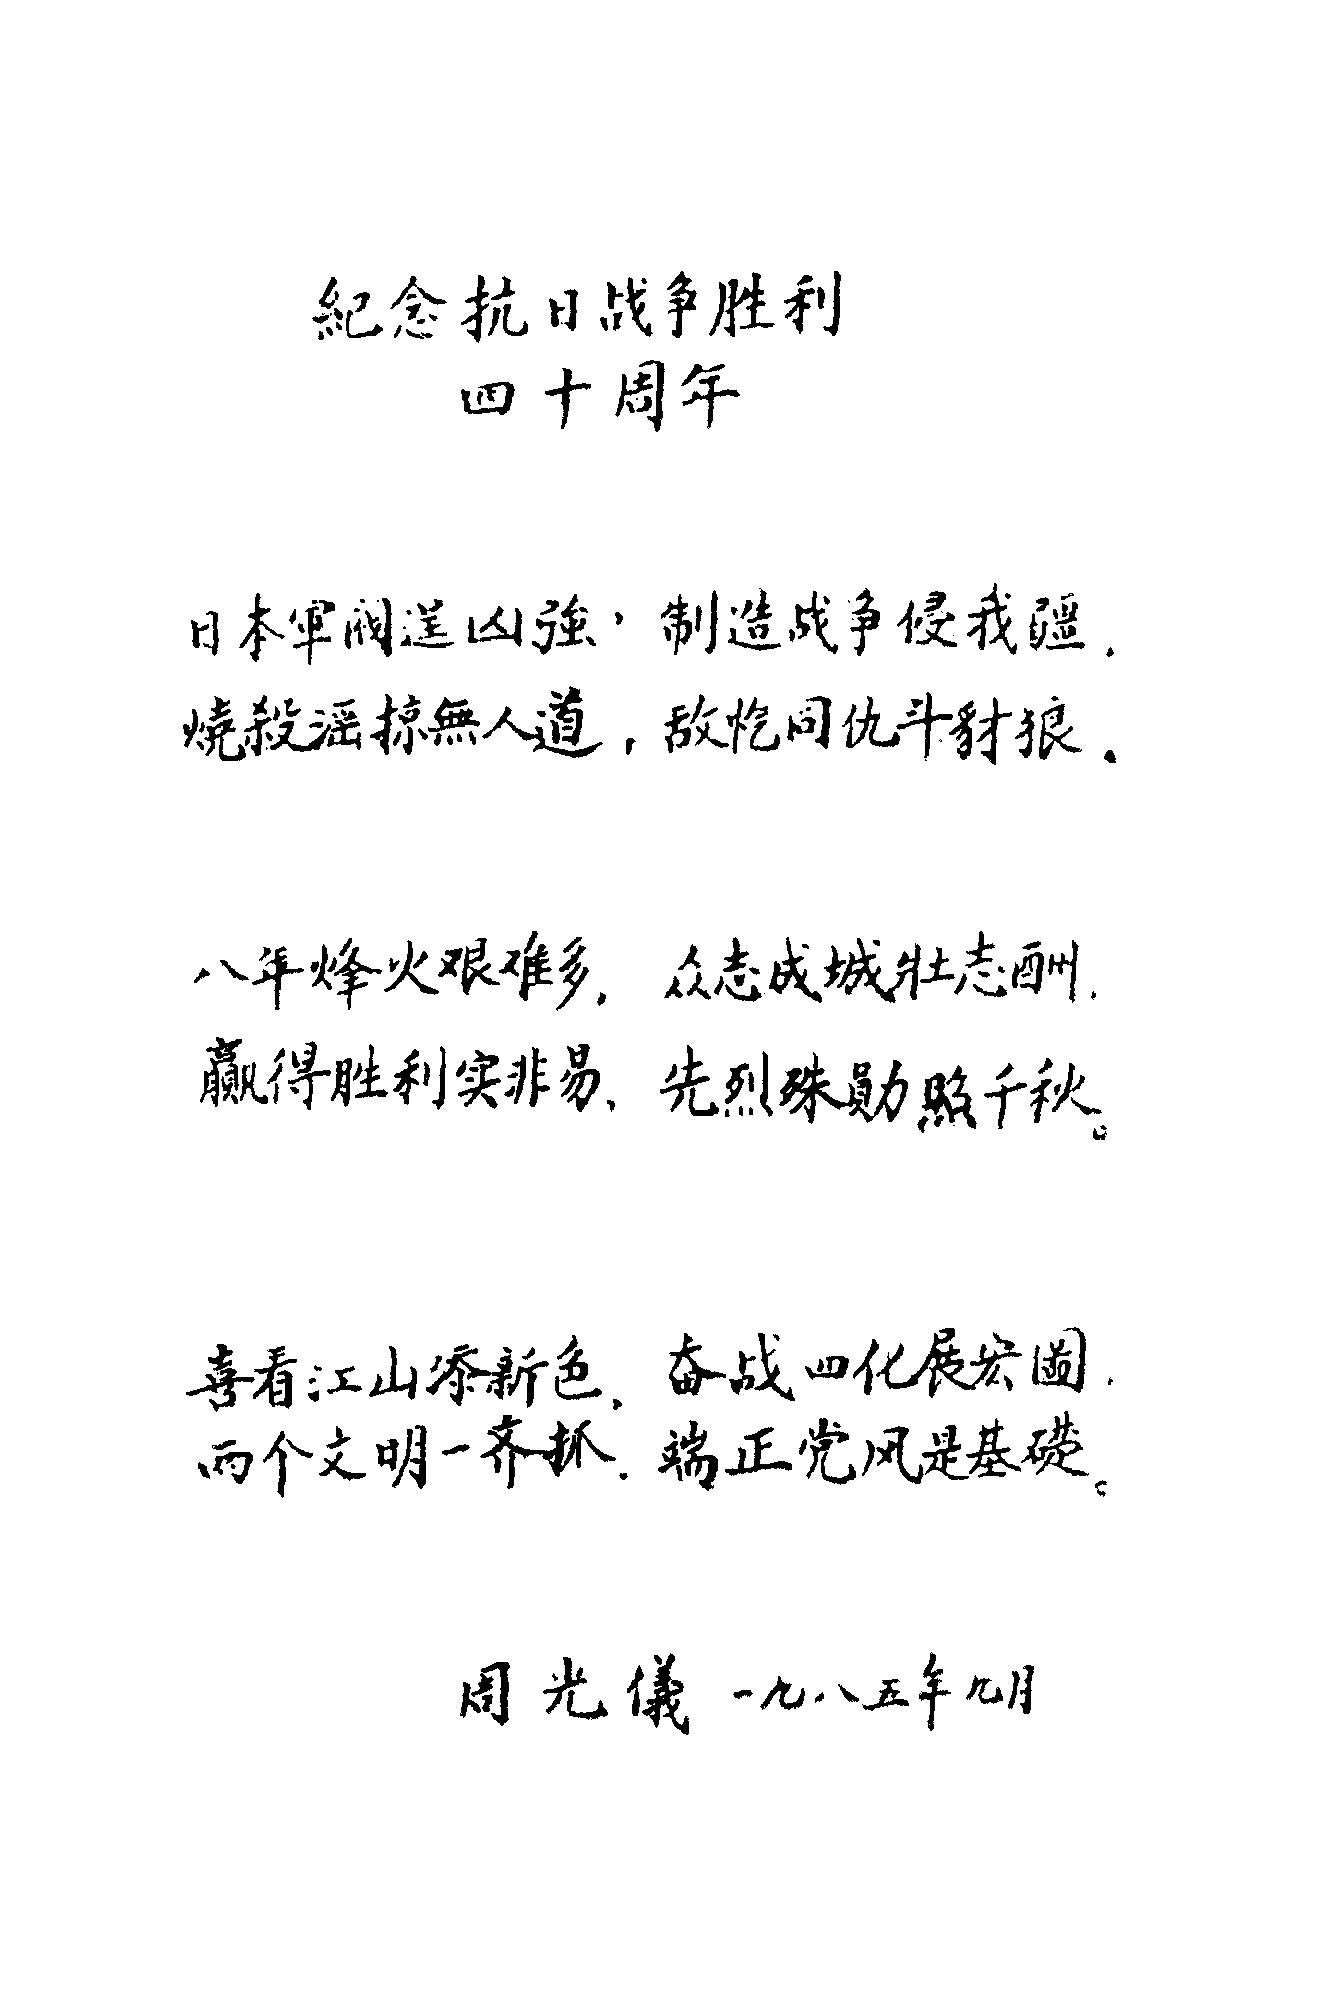 紀念抗日战争胜利
四十周年
日本軍阀逞凶強，制造战争侵我疆．
燒殺淫掠無人道，敌忾同仇斗豺狼．
八年烽火艰难多．众志成城壮志酬．
赢得胜利实非易、先烈殊勛照千秋。
喜看江山添新色．奋战四化展宏圖．
两个文明一齐抓．端正党风是基礎。
周光儀 一九八五年九月